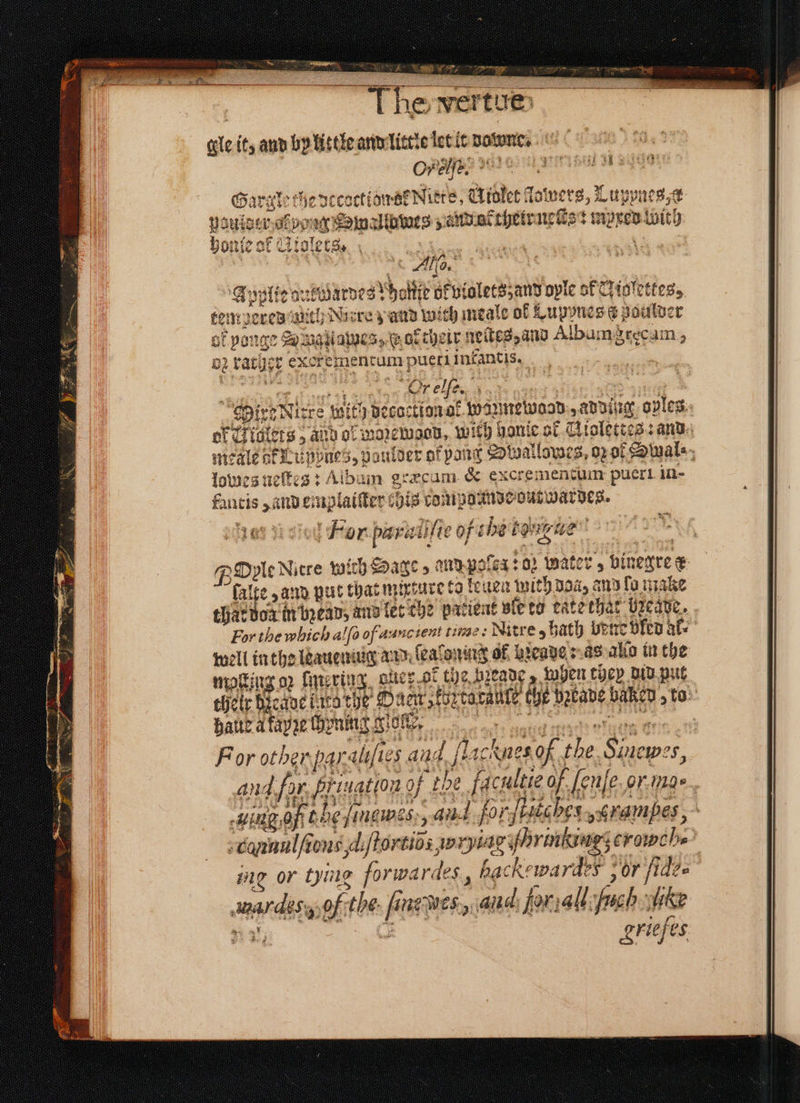 The vertue
gle it, and by little and little let it downe.
Or else.
Gargle the decoction of Nitre, Uiolet flowers, Luppnes, &
pouder of yong Swallowes, and of their nests: mixed with
honie of Uiolets.
Also.
Applie outwardes honie of violets, and oyle of Uiolettes,
tempered with Nitre, and with meale of Luppnes & poulder
of yonge Swallowes, & of their nestes, and Album grecam,
or rather excrementum pueri infantis.
Or else.
Mixe Nitre with decoction of wormewood, adding oyles
of Uiolets, and of wormwood, with honie of Uiolettes: and
meale of Luppnes, poulder of yong Swallowes, or of Swal-
lowes nestes: Album græcum & excrementum pueri in-
fantis, and emplaister this compounde outwardes.
For paralisie of the tongue
Dyle Nitre with Sage, and polea: or water, vinegre &
salte, and put that mixture to leuen with doa, and so make
that doa in bread, and let the patient use to eate that breade.
For the which also of auncient time: Nitre, hath bene used as
well in the leauening and, seasoning of breade: as also in the
molting or smering ouer of the breade, when they did put
their breade into the Ouen, for to cause the breade baked, to
haue a fayre shyning glosse.
For other paralisies and slacknes of the Sinewes,
and for priuation of the facultie of sense, or mo-
uing of the sinewes, and for stitches, crampes,
conuulsions, distortiōs, wrying, shrinking, crowch-
ing or tying forwardes, backewardes, or side-
wardes, of the sinewes, and for all such like
griefes